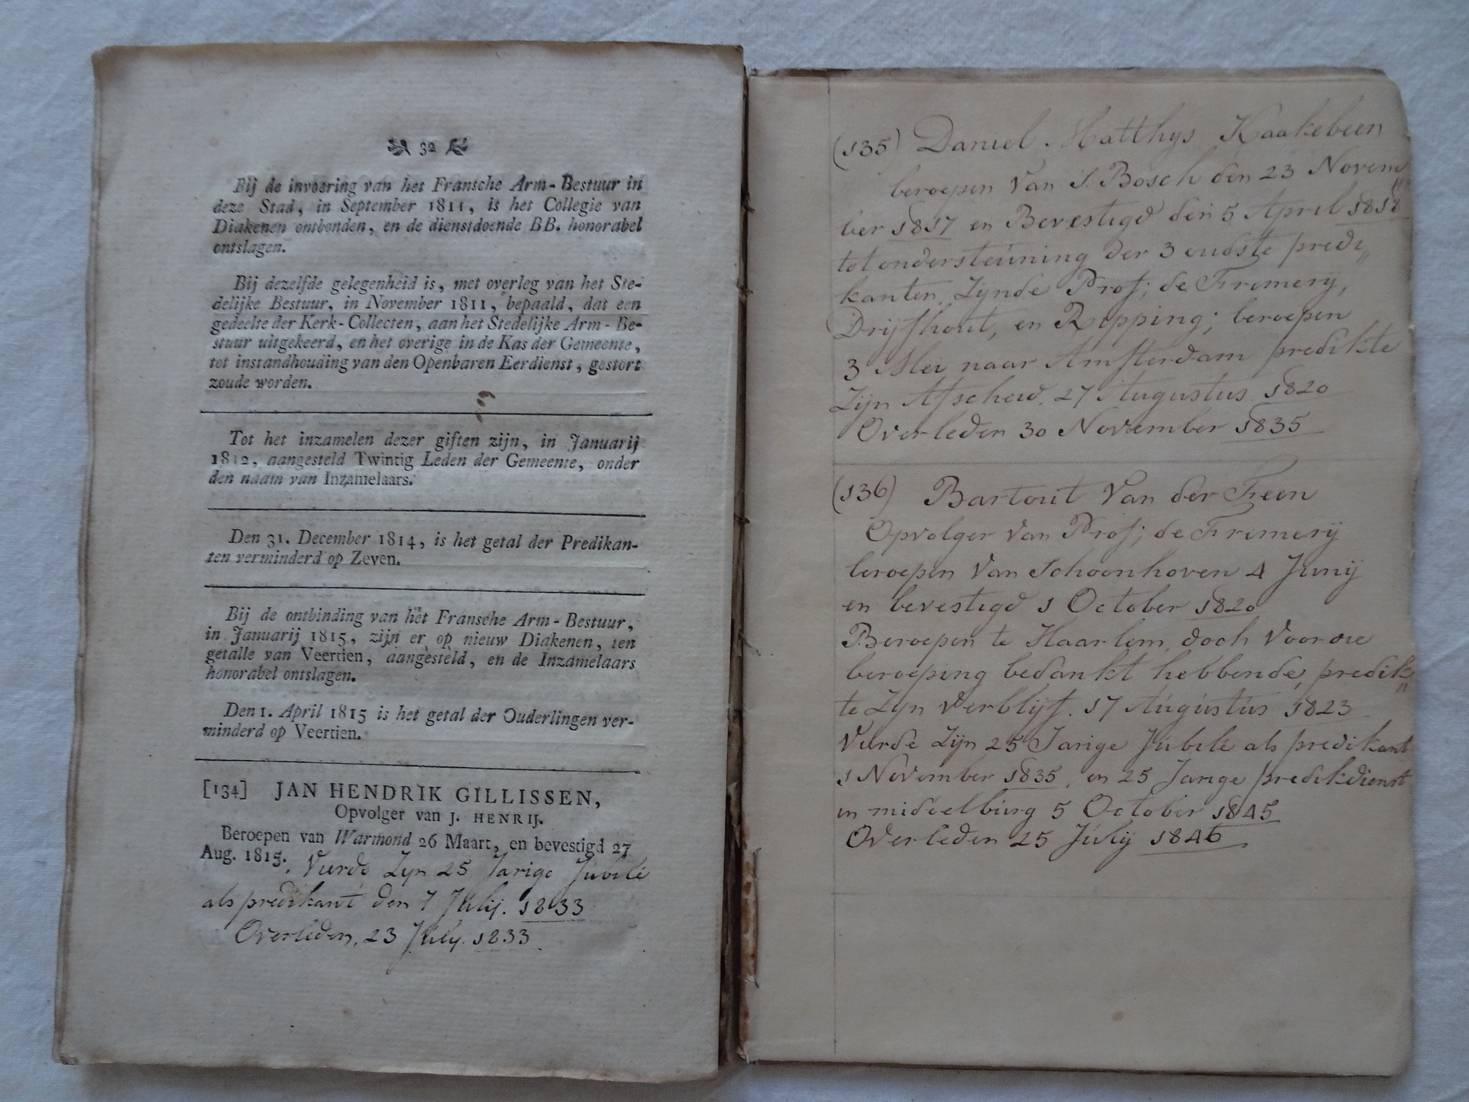 32
Bij de invoering van het Fransche Arm-Bestuur in
deze Stad, in September 1811, is het Collegie van
Diakenen ontbonden, en de dienstdoende BB. honorabel
ontslagen.
Bij dezelfde gelegenheid is, met overleg van het Ste-
delijke Bestuur, in November 1811, bepaald, dat een
gedeelte der Kerk-Collecten, aan het Stedelijke Arm-Be-
stuur uitgekeerd, en het overige in de Kas der Gemeente,
tot instandhouding van den Openbaren Eerdienst, gestort
zoude worden.
Tot het inzamelen dezer giften zijn, in Januarij
1812, aangesteld Twintig Leden der Gemeente, onder
den naam van Inzamelaars.
Den 31. December 1814, is het getal der Predikan-
ten verminderd op Zeven.
Bij de ontbinding van het Fransche Arm-Bestuur,
in Januarij 1815, zijn er op nieuw Diakenen, ten
getalle van Veertien, aangesteld, en de Inzamelaars
honorabel ontslagen.
Den 1. April 1815 is het getal der Ouderlingen ver-
minderd op Veertien.
[134] JAN HENDRIK GILLISSEN,
Opvolger van J. HENRIJ.
Beroepen van Warmond 26 Maart, en bevestigd 27
Aug. 1815. Vierde Zijn 25 Jarige Jubilé
als predikant den 7 Julij. 1833
Overleden, 23 July. 1833
(135) Daniel Matthys Kaakebeen
beroepen Van S. Bosch den 23 Novem„
ber 1817 en Bevestigd den 5 April 1818
tot ondersteuning der 3 oudste predi„
kanten, Zynde Prof; de Fremery,
Drijfhout, en Ripping; beroepen
3 Mei naar Amsterdam predikte
Zijn Afscheid. 27 Augustus 1820
Overleden 30 November 1835
(136) Bartout Van der Feen
Opvolger Van Prof; de Fremerij
beroepen Van Schoonhoven 4 Junij
en bevestigd 1 October 1820
Beroepen te Haarlem, doch Voor die
beroeping bedankt hebbende, predik„
te Zyn Verblijf. 17 Augustus 1823
Vierde Zijn 25 Jarige Jubilé als predikant
1 November 1835, en 25 Jarige predikdienst
in middelburg 5 October 1845
Overleden 25 July 1846